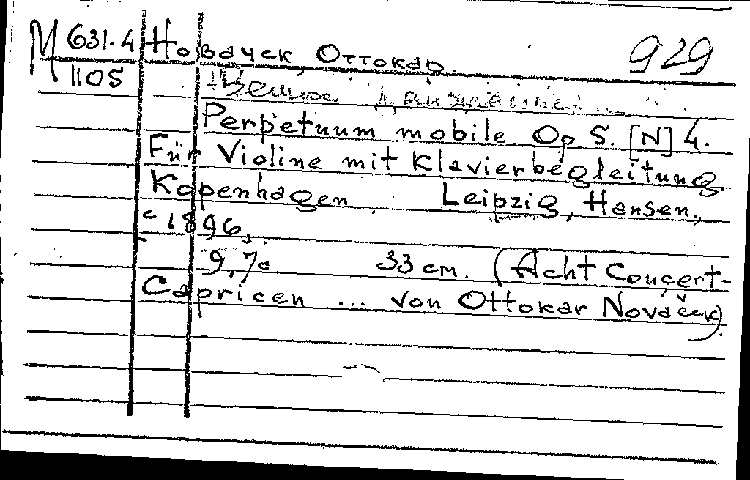 М 631.4 Новачек, Оттокар. 929
1105 Вечное движение
Perpetuum mobile Op 5. [N] 4.
Für Violine mit Klavierbegleitung.
Kopenhagen. Leipzig, Hansen,
c 1896.
9,7c 33 cm. (Acht Concert-
Capricen ... von Ottokar Nováček)